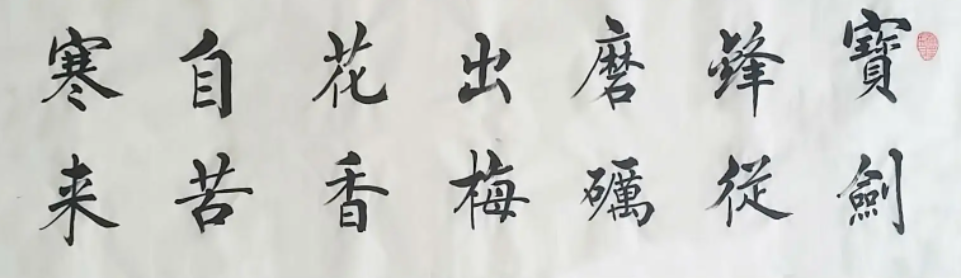 寶劍
鋒從
磨礪
出梅
花香
自苦
寒来